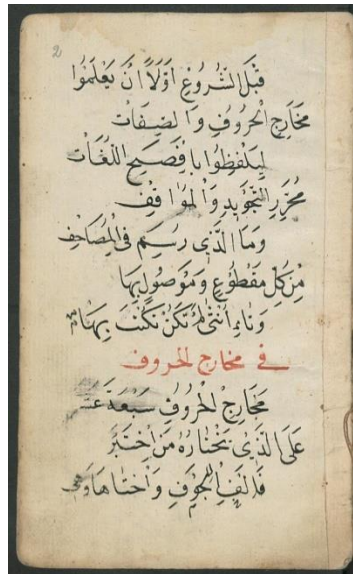 2
قَبْلَ الشُّرُوعِ اَوَّلاً اَنْ يَعْلَمُوا
مَخَارِجَ الْحُرُوفِ وَالصِّفَاتِ
لِيَلْفِظُوا بِاَفْصَحِ اللُّغَاتِ
مُحَرِّرِ التَّجْوِيدِ وَالْمَوَاقِفِ
وَمَا الَّذِي رُسِمَ فِي الْمَصَاحِفِ
مِنْ كُلِّ مَقْطُوعٍ وَمَوْصُولٍ بِهَا
وَتَاءِ اُنْثَى لَمْ تَكُنْ تُكْتَبْ بِهَا
في مخارج الحروف
مَخَارِجُ الْحُرُوفِ سَبْعَةَ عَشَر
عَلَى الَّذِي يَخْتَارُهُ مَنِ اخْتَبَرَ
فَاَلِفُ الْجَوْفِ وَاُخْتَاهَا وَهِي